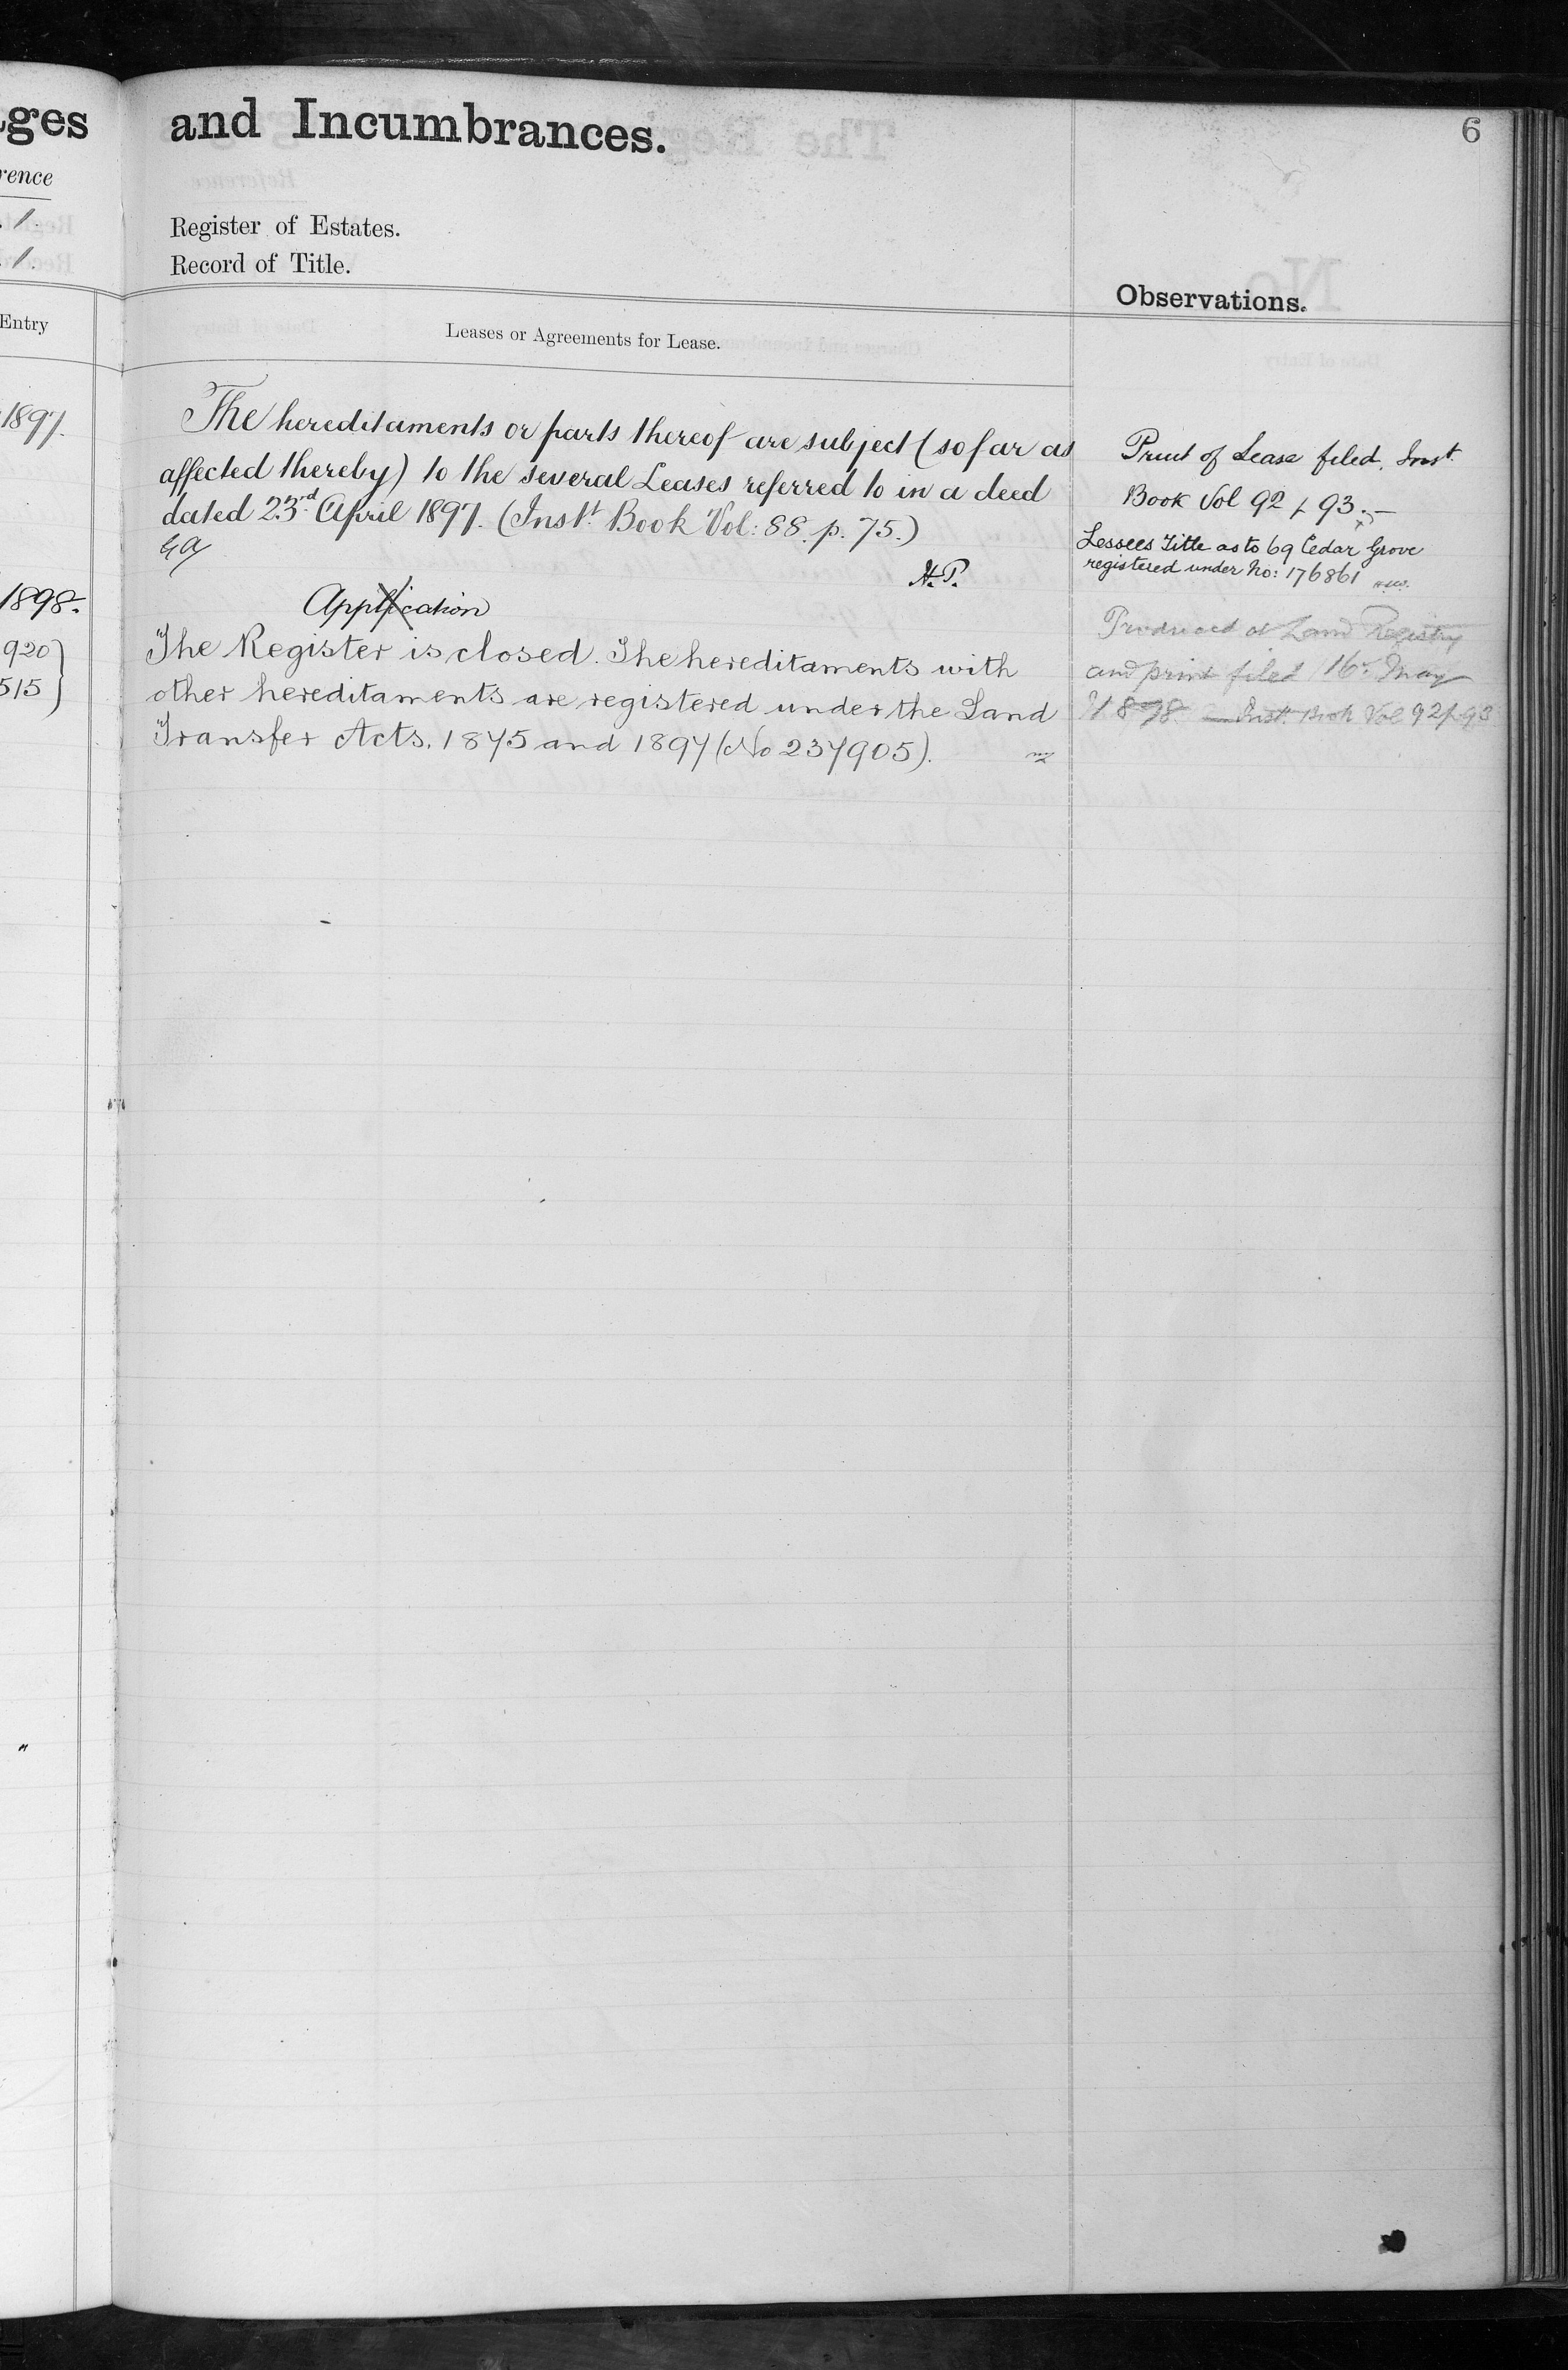 ges
and Incumbrances.
6
rence
1.
1.
Register of Estates.
Record of Title.
Observations.
Entry
Leases or Agreements for Lease.
1897.
The hereditaments or parts thereof are subject (so far as
affected thereby) to the several Leases referred to in a deed
dated 23rd April 1897. (Inst. Book Vol: 88. p. 75.)
H.P.
Application
1898.
920
515
The Register is closed. The hereditaments with
other hereditaments are registered under the Land
Transfer Acts, 1875 and 1897 (No 237905).
Print of Lease filed, Inst.
Book Vol 92 p 93.
Lessees Title as to 69 Cedar Grove
registered under No: 176861
Produced at Land Registry
and print filed 16th May
1898. Inst. Book Vol 92 p 93